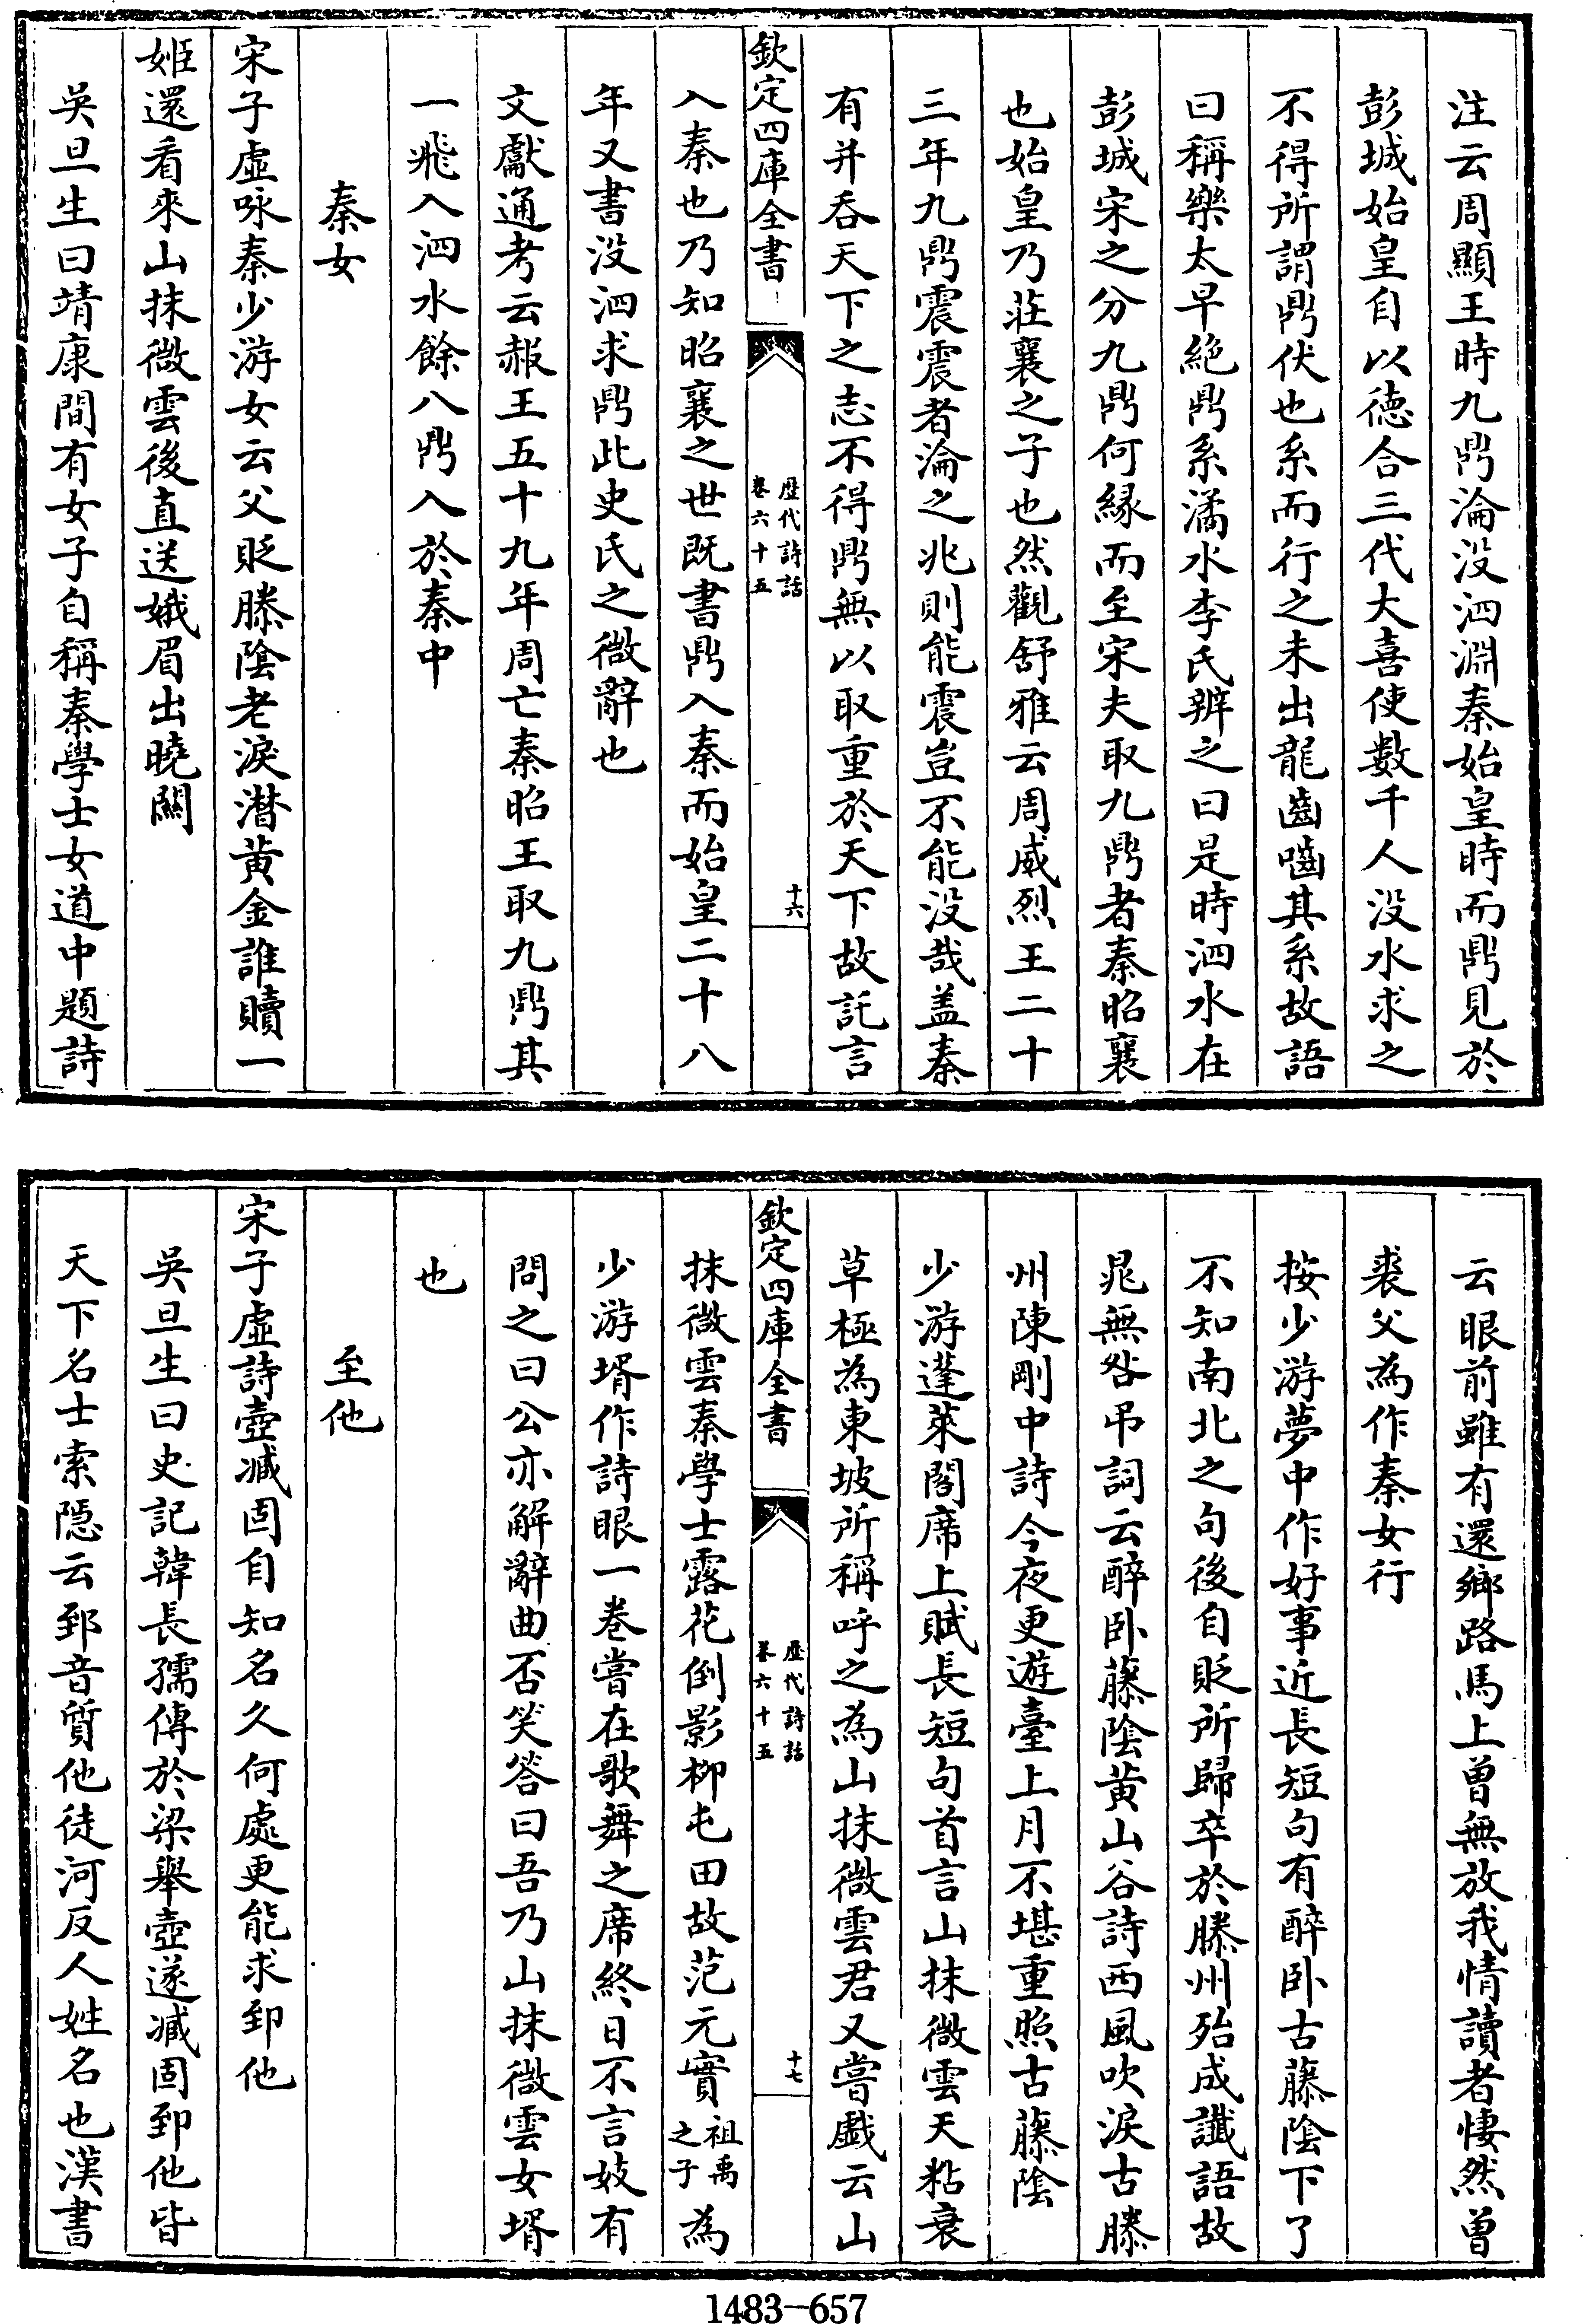 注云周顯王時九鼎淪没泗淵秦始皇時而鼎見於
彭城始皇自以德合三代大喜使數千人没水求之
不得所謂鼎伏也系而行之未出龍齒嚙其系故語
曰稱樂太早絶鼎系潏水李氏辨之曰是時泗水在
彭城宋之分九鼎何緣而至宋夫取九鼎者秦昭襄
也始皇乃莊襄之子也然觀舒雅云周威烈王二十
三年九鼎震震者淪之兆則能震豈不能没哉盖秦
有并吞天下之志不得鼎無以取重於天下故託言
欽定四庫全書
歷代詩話
卷六十五
十六
入秦也乃知昭襄之世既書鼎入秦而始皇二十八
年又書没泗求鼎此史氏之微辭也
文獻通考云赧王五十九年周亡秦昭王取九鼎其
一飛入泗水餘八鼎入於秦中
秦女
宋子虛咏秦少游女云父貶滕陰老淚潛黄金誰贖一
姬還看來山抹微雲後直送娥眉出曉關
吳旦生曰靖康間有女子自稱秦學士女道中題詩
云眼前雖有還鄉路馬上曾無放我情讀者悽然曾
裘父為作秦女行
按少游夢中作好事近長短句有醉卧古藤陰下了
不知南北之句後自貶所歸卒於滕州殆成讖語故
晁無咎弔詞云醉卧藤陰黄山谷詩西風吹淚古滕
州陳剛中詩今夜更遊臺上月不堪重照古藤陰
少游蓬萊閣席上賦長短句首言山抹微雲天粘衰
草極為東坡所稱呼之為山抹微雲君又嘗戲云山
欽定四庫全書
歷代詩話
卷六十五
十七
抹微雲秦學士露花倒影柳屯田故范元實祖禹之子為
少游壻作詩眼一卷嘗在歌舞之席終日不言妓有
問之曰公亦解辭曲否笑答曰吾乃山抹微雲女壻
也
至他
宋子虛詩壺减固自知名久何處更能求郅他
吳旦生曰史記韓長孺傳於梁舉壺遂减固郅他皆
天下名士索隠云郅音質他徒河反人姓名也漢書
1483-657